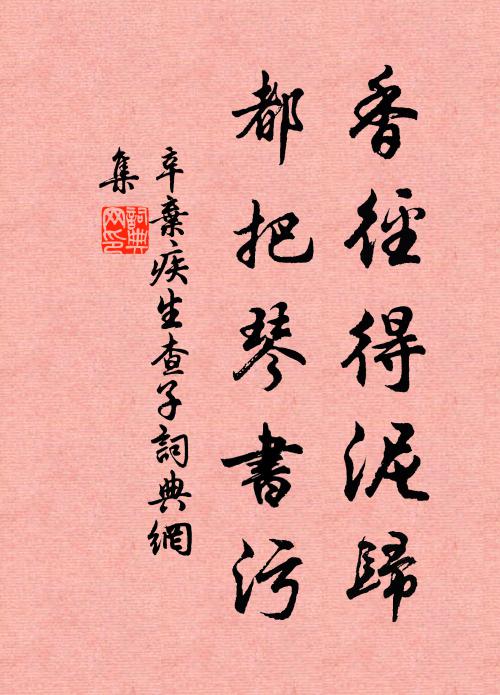 香徑得泥歸
都把琴書污
辛棄疾生查子詞典網
集
詞典
网印